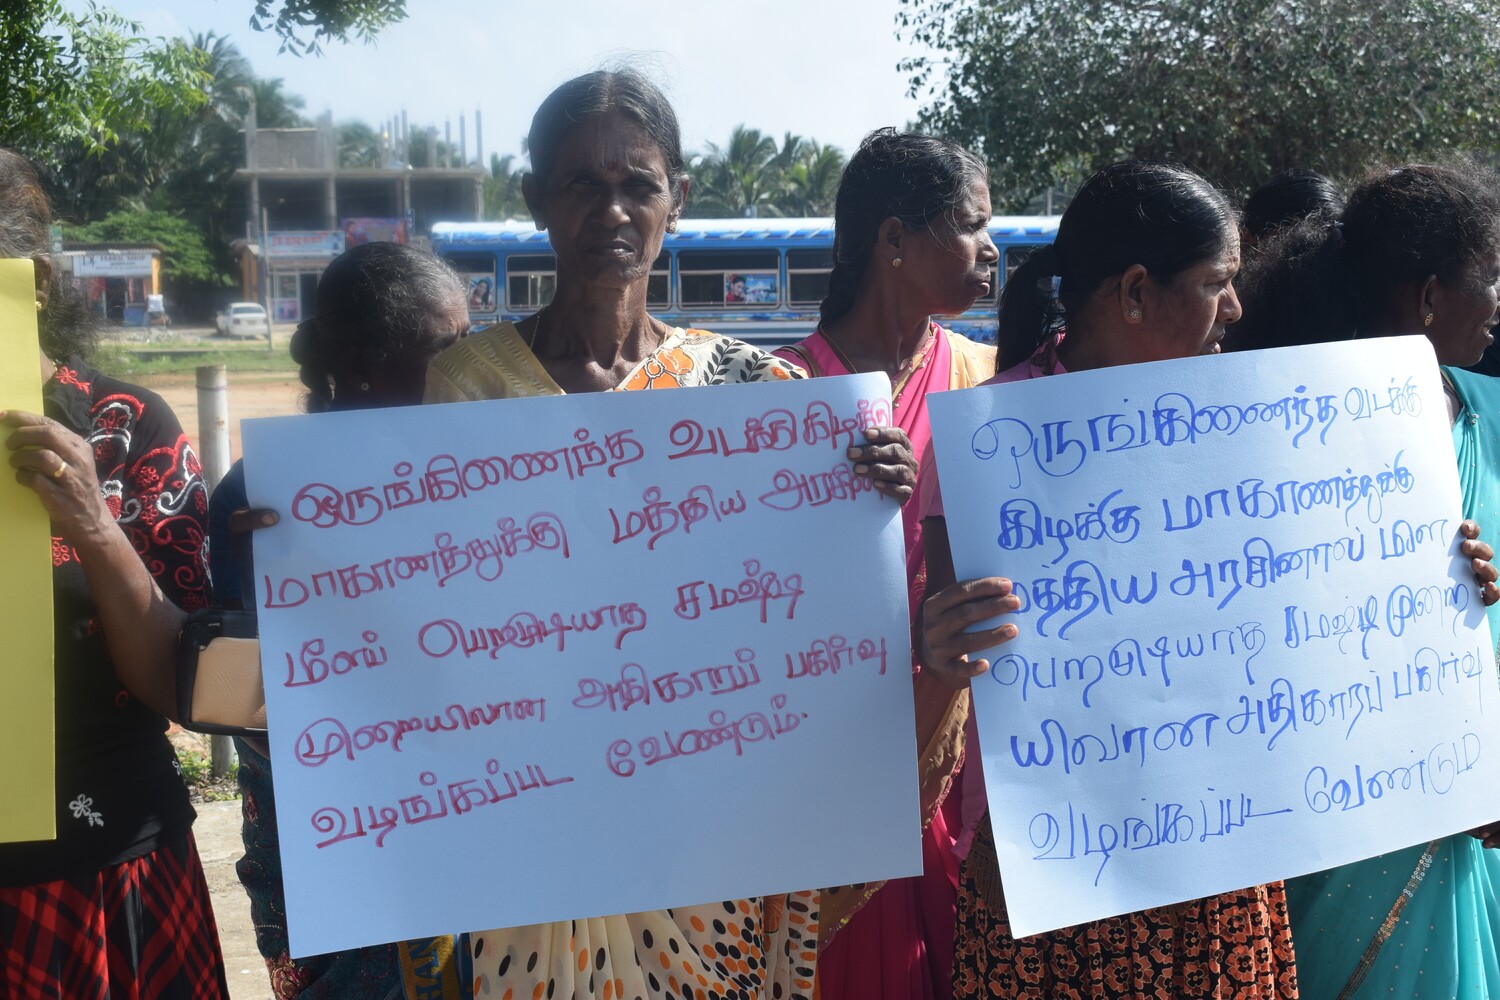 ஒருங்கிணைந்த வடக்கு கிழக்கு
மாகாணத்துக்கு மத்திய அரசின
மீளப் பெறமுடியாத சமஷ்டி
முறையிலான அதிகாரப் பகிர்வு
வடிங்கப்பட வேண்டும்.
ஒருங்கிணைந்த வடக்கு
கிழக்கு மாகாணத்துக்கு
மத்திய அரசினால் மீள
பெறமுடியாத சமஷ்டி முறை
யிலான அதிகாரப் பகிர்வு
வடிங்கப்பட வேண்டும்